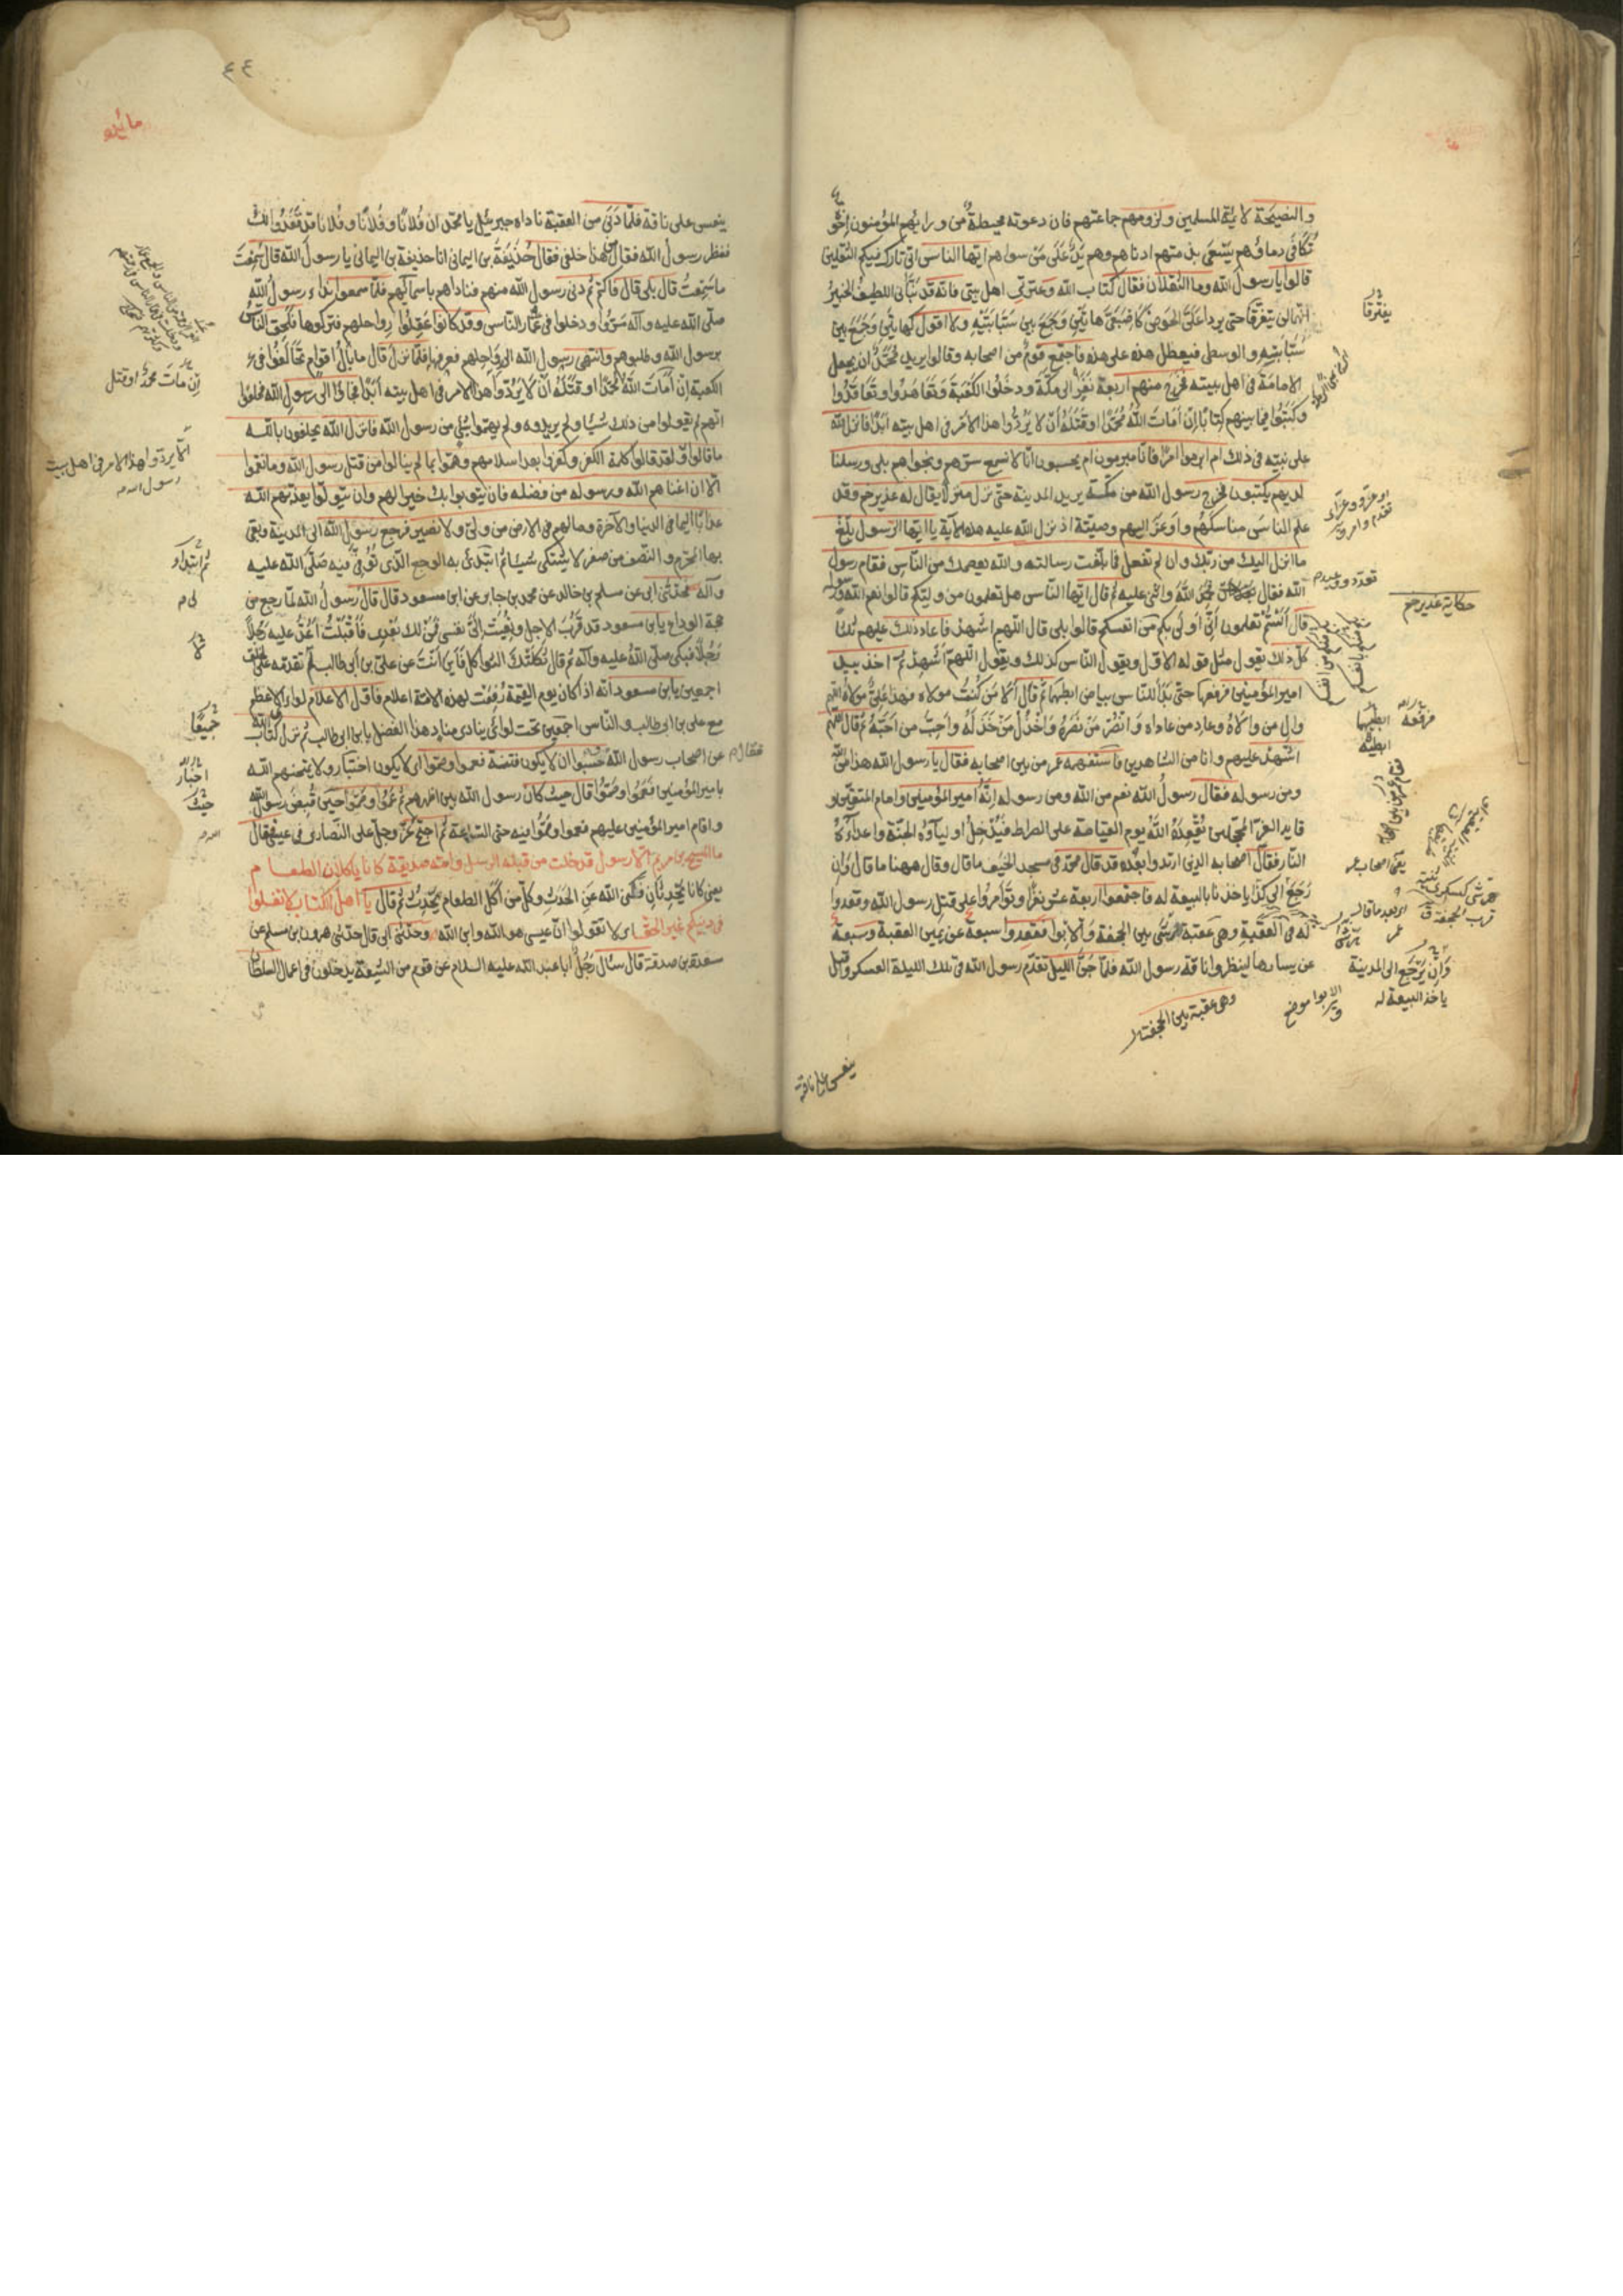 والنصيحة لائمة المسلمين ولزومهم جماعتهم فان دعوته محيطة من ورايهم المؤمنون اخو
تكافى دماؤهم يسعى بذمتهم ادناهم وهم يد على من سواهم ايها الناس انى تارك فيكم الثقلين
قالوا يا رسول الله وما الثقلان فقال كتاب الله وعترتى اهل بيتى فانه قد نبأنى اللطيف الخبير
انهما لن يتفرقا حتى يردا على الحوض كاصبعى هاتين وجمع بين سبابتيه ولا اقول كهاتين وجمع بين
سبابته والوسطى فيفضل هذه على هذه فاجتمع قوم من اصحابه وقالوا يريد محمد ان يجعل
الامامة فى اهل بيته فخرج منهم اربعة نفر الى مكة ودخلوا الكعبة وتعاهدوا وتعاقدوا
وكتبوا فيما بينهم كتابا ان امات الله محمدا او قتله ان لا يردوا هذا الامر فى اهل بيته ابدا فانزل الله
على نبيه فى ذلك ام ابرموا امرا فانا مبرمون ام يحسبون انا لا نسمع سرهم ونجواهم بلى ورسلنا
لديهم يكتبون فخرج رسول الله من مكة يريد المدينة حتى نزل منزلا يقال له غدير خم وقد
علم الناس مناسكهم واوعز اليهم وصيته اذ نزل الله عليه هذه الاية يا ايها الرسول بلغ
ما انزل اليك من ربك وان لم تفعل فما بلغت رسالته والله يعصمك من الناس فقام رسول
الله فقال حمد الله واثنى عليه ثم قال ايها الناس هل تعلمون من وليكم قالوا نعم الله ورسوله
قال الستم تعلمون انى اولى بكم من انفسكم قالوا بلى قال اللهم اشهد فاعاد ذلك عليهم ثلثا
كل ذلك يقول مثل قوله الاول ويقول الناس كذلك ويقول اللهم اشهد ثم اخذ بيد
امير المؤمنين فرفعها حتى بدا للناس بياض ابطيهما ثم قال الا من كنت مولاه فهذا على مولاه اللهم
وال من والاه وعاد من عاداه وانصر من نصره واخذل من خذله واحب من احبه ثم قال اللهم
اشهد عليهم وانا من الشاهدين فاستفهمه عمر من بين اصحابه فقال يا رسول الله هذا من الله
ومن رسوله فقال رسول الله نعم من الله ومن رسوله انه امير المؤمنين وامام المتقين و
قايد الغر المحجلين يقعده الله يوم القيامة على الصراط فيدخل اولياؤه الجنة واعداءه
النار فقال اصحابه الذين ارتدوا بعده قد قال محمد فى مسجد الخيف ما قال وقال ههنا ما قال وان
رجع الى كذا ياخذنا بالبيعة له فاجتمعوا اربعة عشر نفرا وتوامروا على قتل رسول الله وقعدوا
له فى العقبة وهى عقبة هرشى بين الجحفة والابوا فقعدوا سبعة عن يمين العقبة وسبعة
عن يسارها لينفروا ناقة رسول الله فلما جن الليل تقدم رسول الله فى تلك الليلة العسكر واقبل
يفترقا
حكاية غدير خم
فرفعه
ابطيهما
ابطيه
يعنى اصحاب عمر
وان يرجع الى المدينة
ياخذ البيعة له
الابوا موضع
وهى عقبة بين الجحفة
ينعس على ناقة
٤٤
مائده
ينعس على ناقة فلما دنى من العقبة ناداه جبرئيل يا محمد ان فلانا وفلانا وفلانا قد قعدوا لك
فنظر رسول الله فقال من هذا خلفى فقال حذيفة بن اليمانى انا حذيفة بن اليمانى يا رسول الله قال سمعت
ما سمعت قال بلى قال فاكتم ثم دنى رسول الله منهم فناداهم باسمائهم فلما سمعوا نداء رسول الله
صلى الله عليه وآله مروا ودخلوا فى غمار الناس وقد كانوا عقلوا رواحلهم فتركوها فلحق الناس
برسول الله وطلبوهم وانتهى رسول الله الى رواحلهم فعرفها فلما نزل قال ما بال اقوام تحالفوا فى
الكعبة ان امات الله محمدا او قتله ان لا يردوا هذا الامر فى اهل بيته ابدا فجاؤا الى رسول الله فحلفوا
انهم لم يقولوا من ذلك شيئا ولم يريدوه ولم يهموا بشئ من رسول الله فانزل الله يحلفون بالله
ما قالوا ولقد قالوا كلمة الكفر وكفروا بعد اسلامهم وهموا بما لم ينالوا من قتل رسول الله وما نقموا
الا ان اغناهم الله ورسوله من فضله فان يتوبوا يك خيرا لهم وان يتولوا يعذبهم الله
عذابا اليما فى الدنيا والآخرة وما لهم فى الارض من ولى ولا نصير فرجع رسول الله الى المدينة وبقى
بها المحرم والنصف من صفر لا يشتكى شيئا ثم ابتدئ به الوجع الذى توفى فيه صلى الله عليه
وآله فحدثنى ابى عن مسلم بن خالد عن محمد بن جابر عن ابن مسعود قال قال رسول الله لما رجع من
حجة الوداع يابن مسعود قد قرب الاجل ونعيت الى نفسى فمن لذلك بعدى فاقبلت اعد عليه رجلا
رجلا فبكى صلى الله عليه وآله ثم قال ثكلتك الثواكل فاين انت عن على بن ابى طالب لم تقدمه على الخلق
اجمعين يابن مسعود انه اذا كان يوم القيمة رفعت لهذه الامة اعلام فاول الاعلام لواى الاعظم
مع على بن ابى طالب والناس اجمعين تحت لوائى ينادى مناد هذا الفضل يابن ابى طالب ثم نزل كتاب الله
عن اصحاب رسول الله وحسبوا ان لا يكون فتنة فعموا وصموا اى لا يكون اختبار ولا يمتحنهم الله
بامير المؤمنين فعموا وصموا قال حيث كان رسول الله بين اظهرهم ثم عموا وصموا حين قبض رسول الله
واقام امير المؤمنين عليهم فعموا وصموا فيه حتى الساعة ثم احتج عز وجل على النصارى فى عيسى فقال
ما المسيح بن مريم الا رسول قد خلت من قبله الرسل وامه صديقة كانا ياكلان الطعام
يعنى كانا يحدثان فكنى الله عن الحدث وكل من اكل الطعام يحدث ثم قال يا اهل الكتاب لا تغلوا
فى دينكم غير الحق اى لا تقولوا ان عيسى هو الله وابن الله وحدثنى ابى قال حدثنى هرون بن مسلم عن
مسعدة بن صدقة قال سئال رجل ابا عبد الله عليه السلام عن قوم من الشيعة يدخلون فى اعمال السلطان
ان مات محمد او قتل
الا يردوا هذا الامر فى اهل بيت
رسول الله
ثم ابتدأ
جميعا
اختبار
حيث
فقال